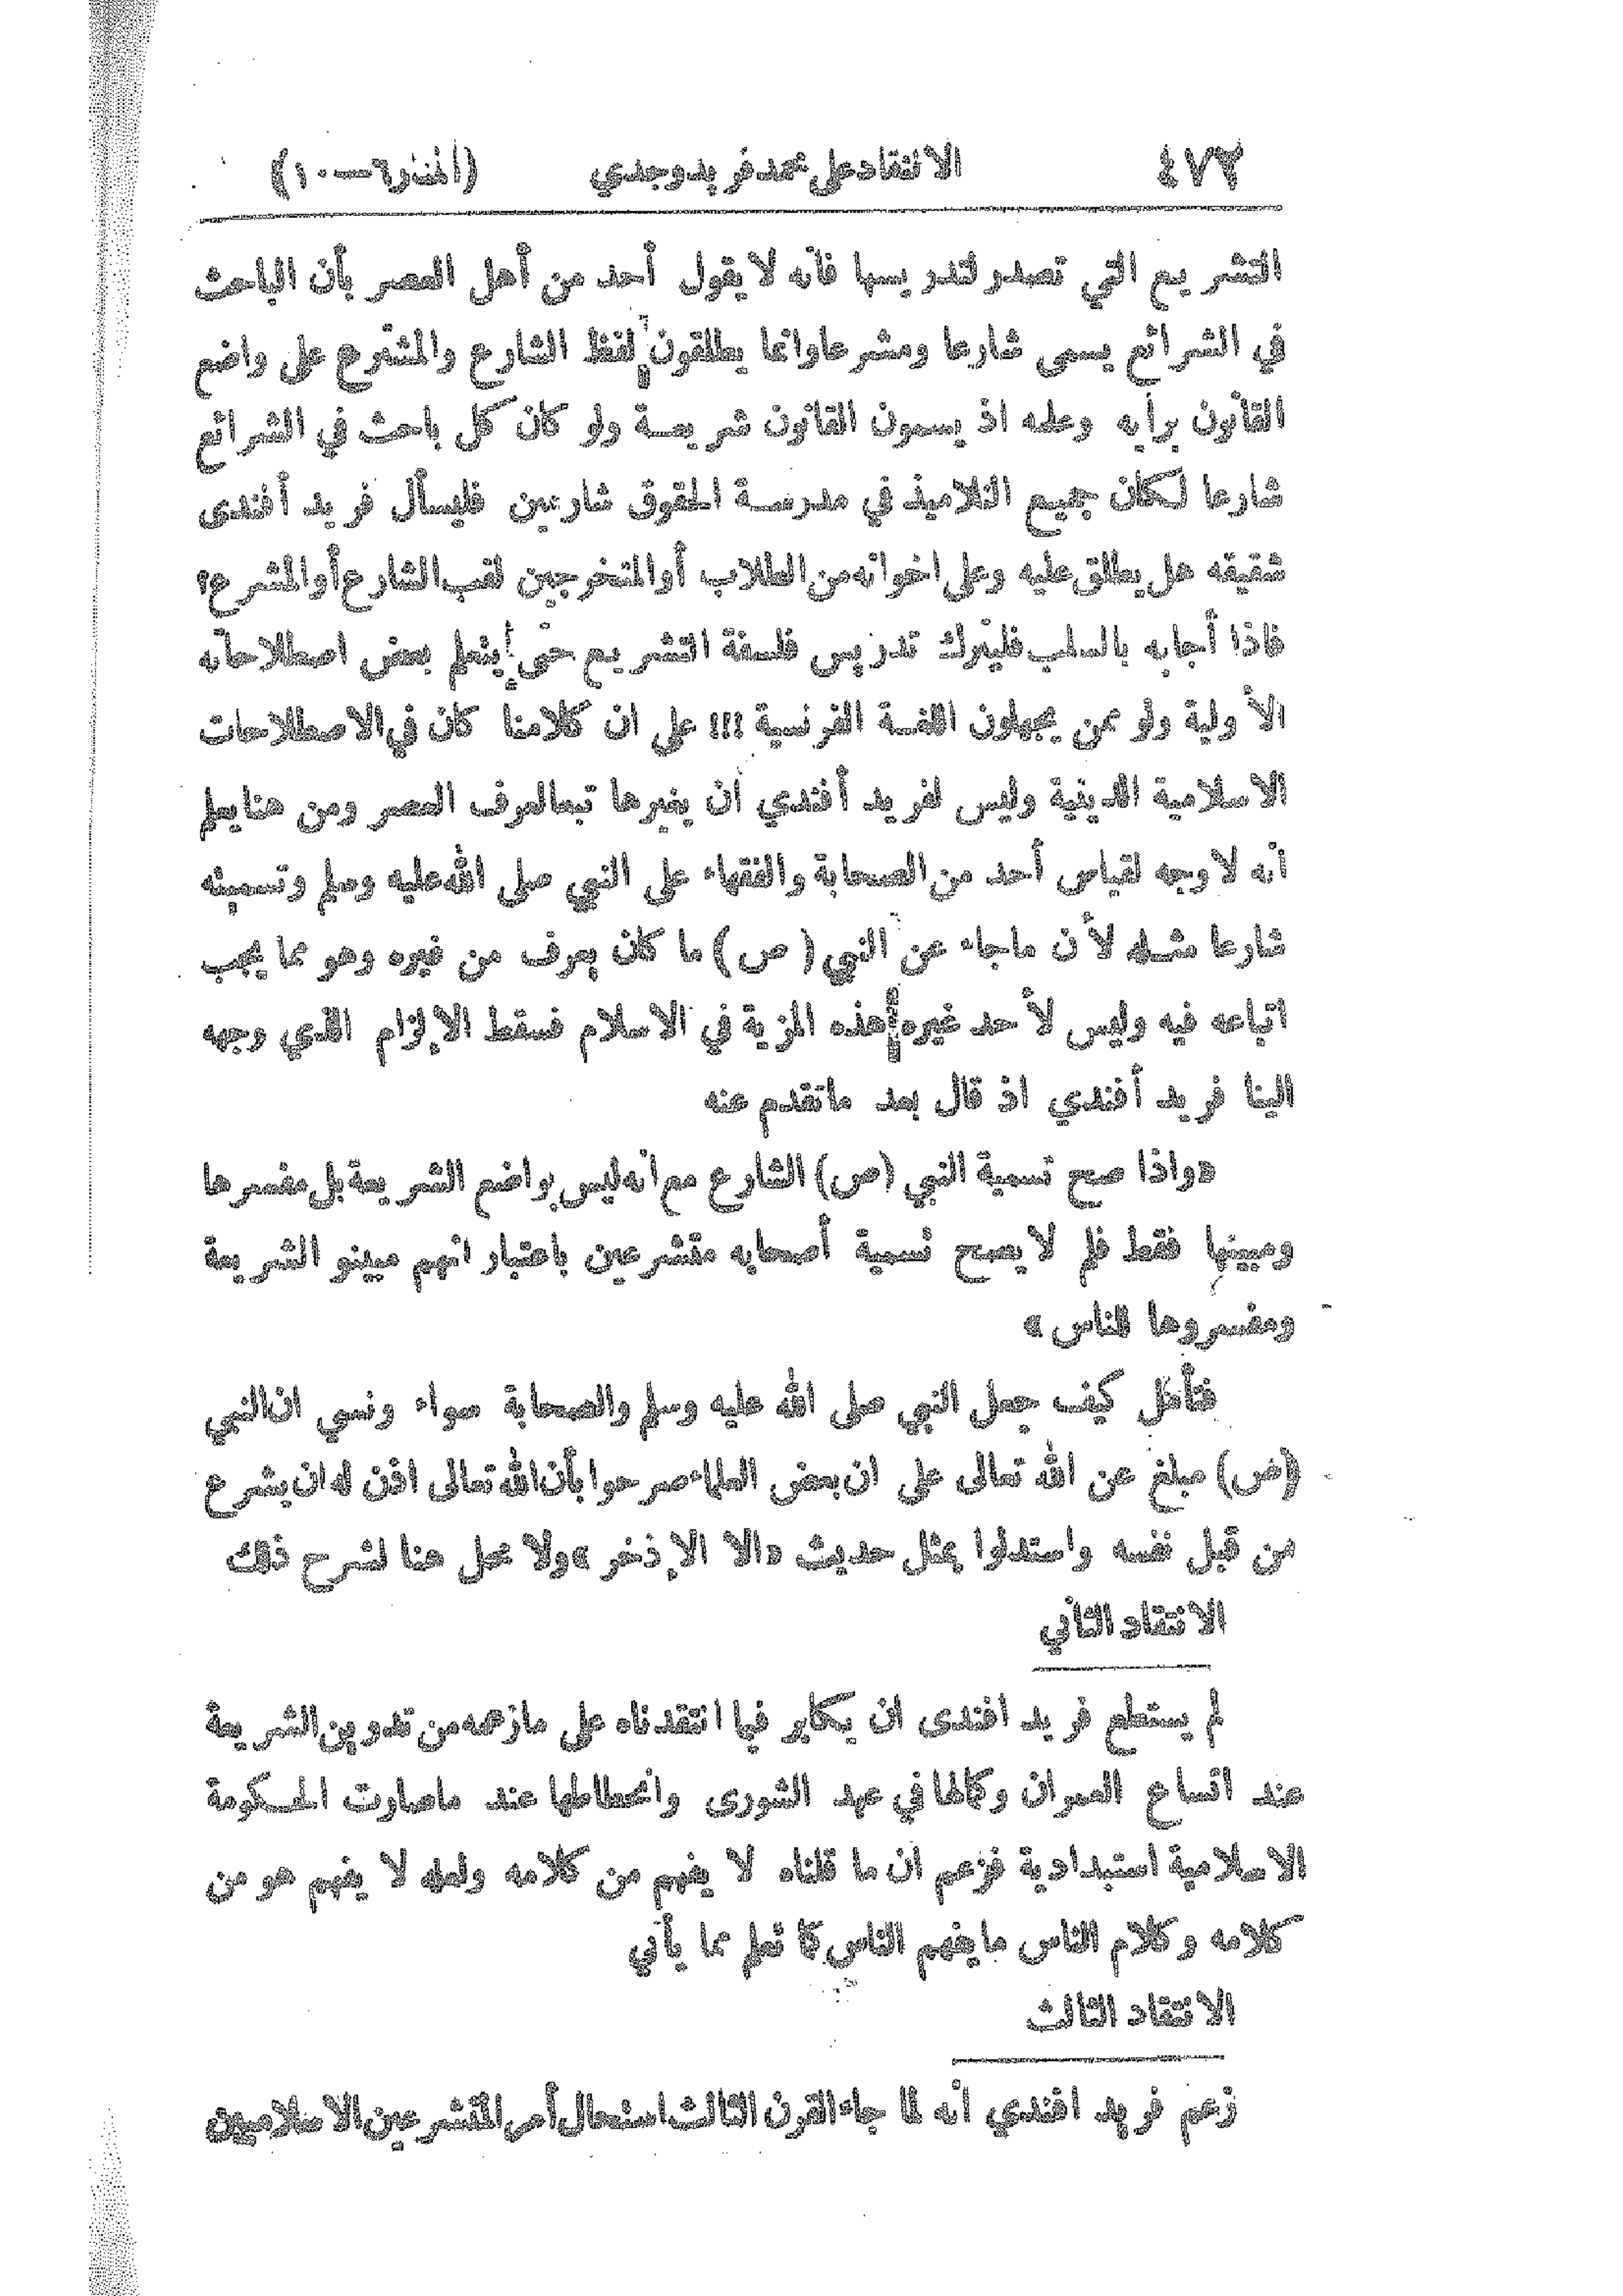 ٤٧٢ الانتقاد على محمد فريد وجدي (المنار ٦ — ١٠)
التشريع التي تصدر لتدريسها فانه لا يقول أحد من أهل العصر بأن الباحث
في الشرائع يسمى شارعا ومشرعا وانما يطلقون لفظ الشارع والمشترع على واضع
القانون برأيه وعلمه اذ يسمون القانون شريعة ولو كان كل باحث في الشرائع
شارعا لكان جميع التلاميذ في مدرسة الحقوق شارعين فليسأل فريد أفندى
شقيقه هل يطلق عليه وعلى اخوانه من الطلاب أو المتخرجين لقب الشارع أو المشرع؟
فاذا أجابه بالسلب فليترك تدريس فلسفة التشريع حتى يتعلم بعض اصطلاحاته
الأولية ولو ممن يجهلون اللغة الفرنسية !!! على ان كلامنا كان في الاصطلاحات
الاسلامية الدينية وليس لفريد أفندي أن يغيرها تبعا لعرف العصر ومن هنا يعلم
أنه لا وجه لقياس أحد من الصحابة والفقهاء على النبي صلى الله عليه وسلم وتسميته
شارعا مثله لأن ما جاء عن النبي (ص) ما كان يعرف من غيره وهو مما يجب
اتباعه فيه وليس لأحد غيره هذه المزية في الاسلام فسقط الإلزام الذي وجهه
الينا فريد أفندي اذ قال بعد ما تقدم عنه
«واذا صح تسمية النبي (ص) الشارع مع انه ليس بواضع الشريعة بل مفسرها
ومبينها فقط فلم لا يصح تسمية أصحابه متشرعين باعتبار انهم مبينو الشريعة
ومفسروها للناس»
فتأمل كيف جعل النبي صلى الله عليه وسلم والصحابة سواء ونسي ان النبي
(ص) مبلغ عن الله تعالى على ان بعض العلماء صرحوا بأن الله تعالى اذن له ان يشرع
من قبل نفسه واستدلوا بمثل حديث «الا الإذخر» ولا محل هنا لشرح ذلك
الانتقاد الثاني
لم يستطع فريد افندى ان يكابر فيما انتقدناه على ما زعمه من تدوين الشريعة
عند اتساع العمران وكمالها في عهد الشورى وانحطاطها عند ما صارت الحكومة
الاسلامية استبدادية فزعم ان ما قلناه لا يفهم من كلامه ولعله لا يفهم هو من
كلامه وكلام الناس ما يفهم الناس كما تعلم مما يأتي
الانتقاد الثالث
زعم فريد افندي أنه لما جاء القرن الثالث استفحال أمر المتشرعين الاسلاميين